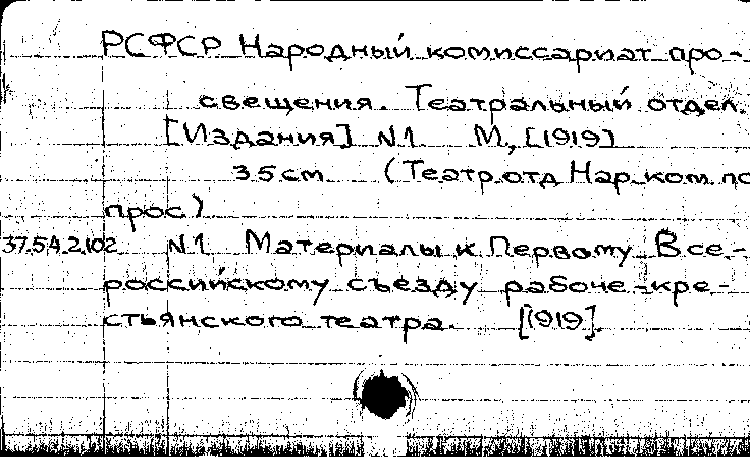 РСФСР Народный комиссариат про-
свещения. Театральный отдел.
[Издания] N1 М., [1919]
35 см (Театр. отд Нар. ком. по
прос)
37.54.2.102 N1 Материалы к Первому Все-
российскому съезду рабоче-кре-
стьянского театра. [1919].